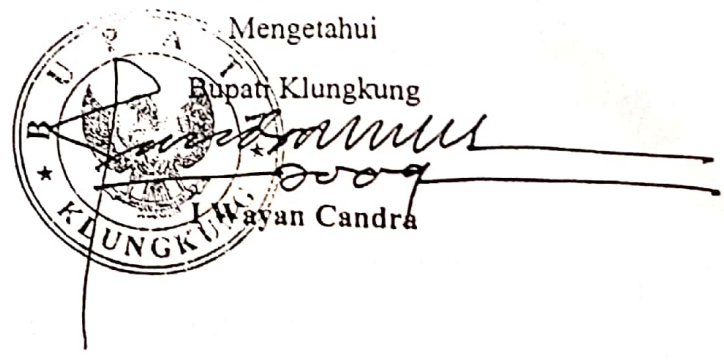 Mengetahui
Bupati Klungkung
I Wayan Candra
BUPATI
KLUNGKUNG